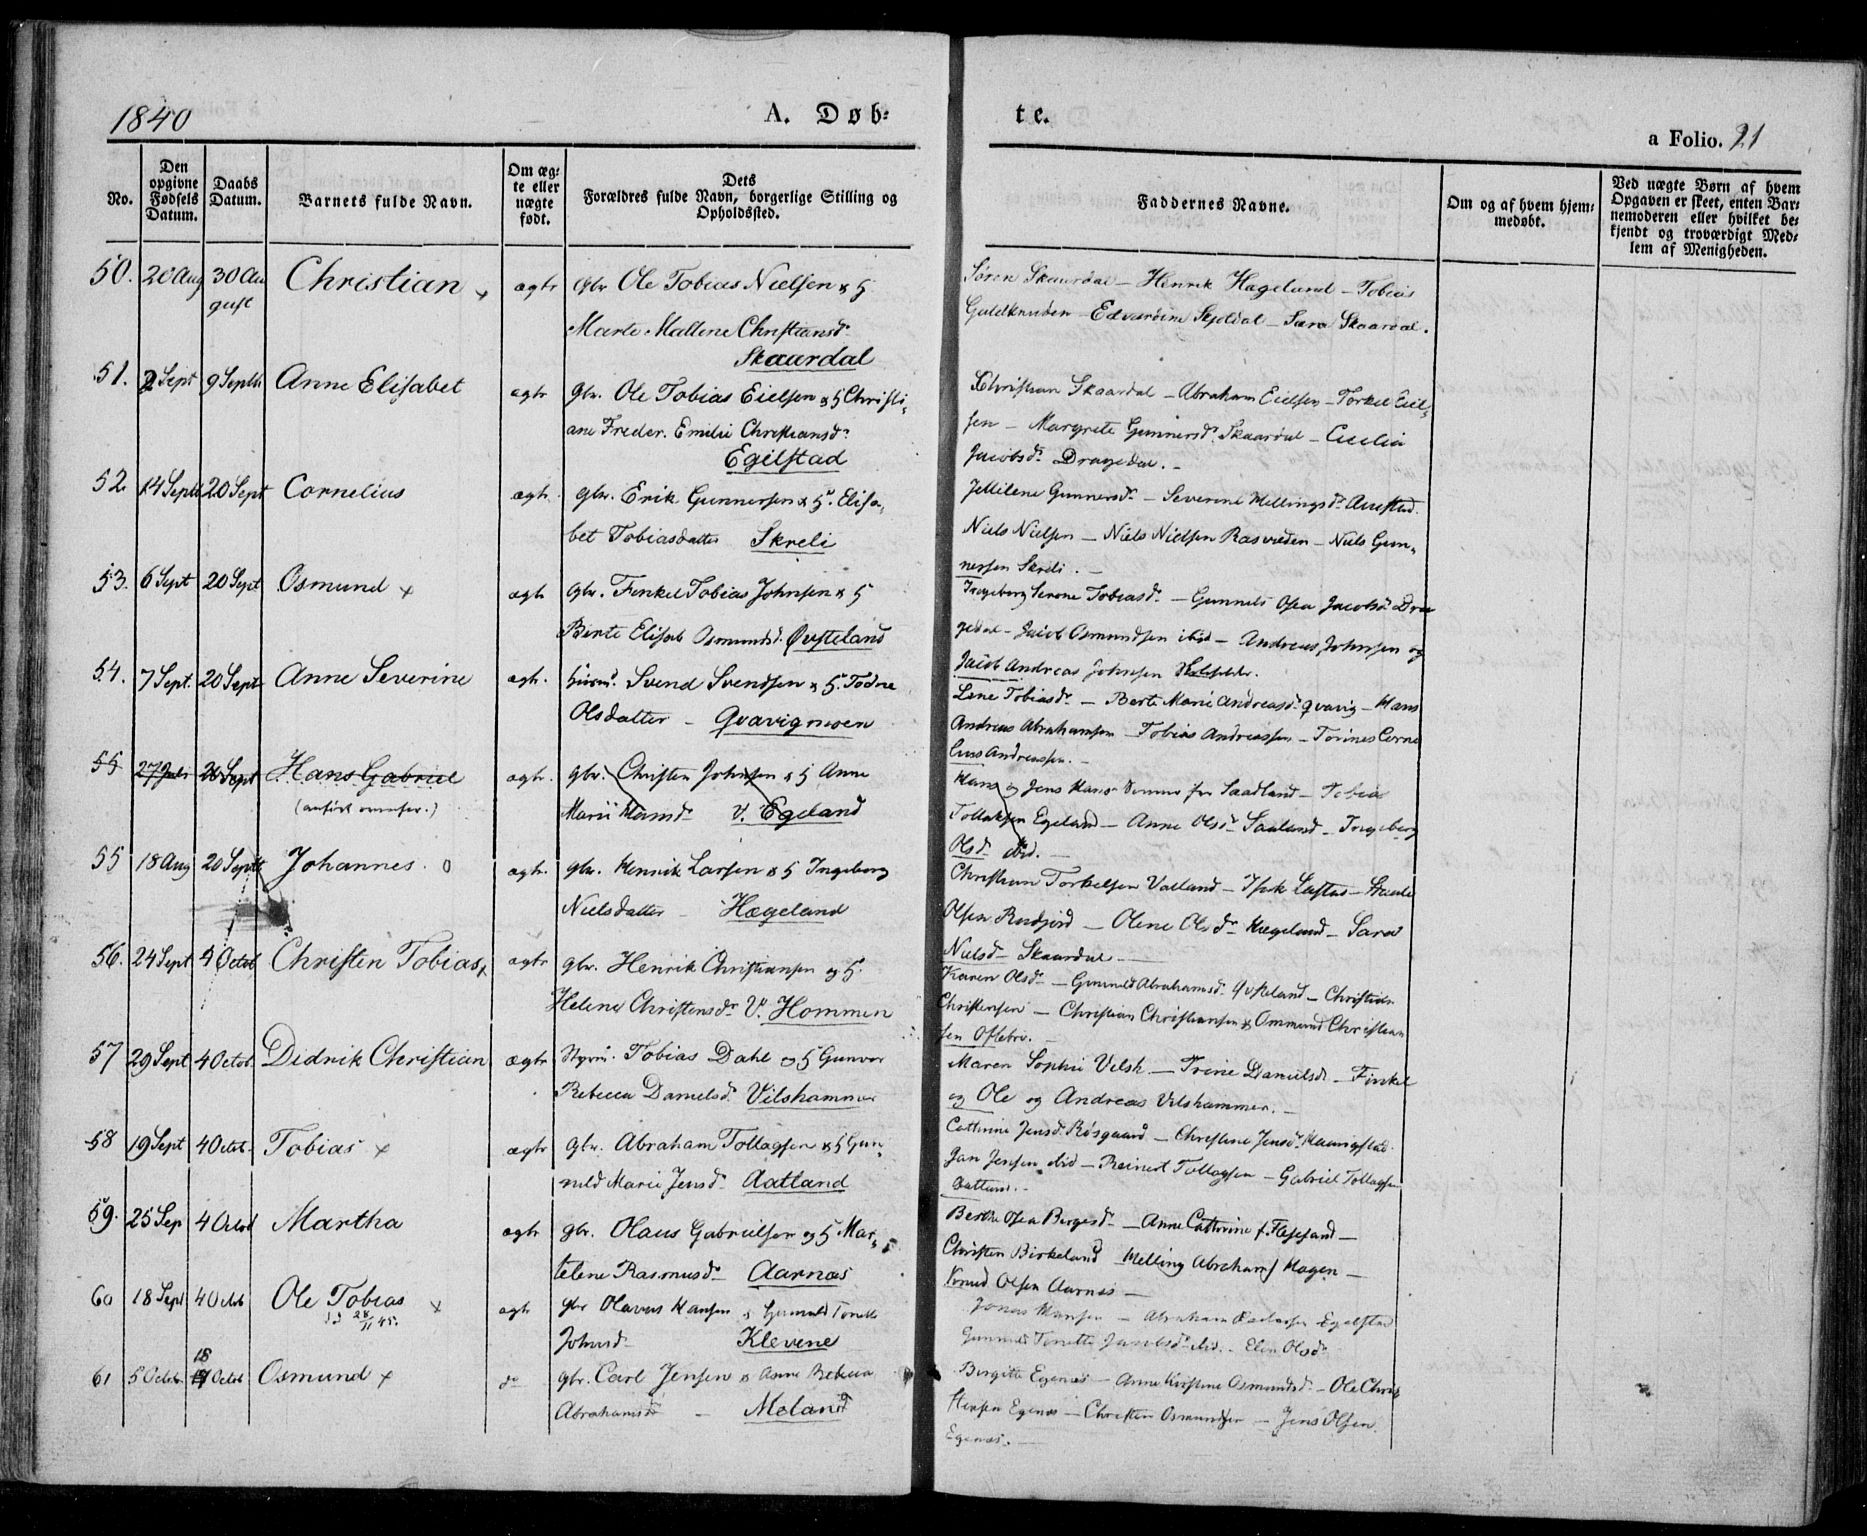 1840
A. Døb-
te.
a Folio. 21
No.
Den opgivne Fødsels Datum.
Daabs Datum.
Barnets fulde Navn.
Om æg-
te eller
uægte
født.
Dets
Forældres fulde Navn, borgerlige Stilling og
Opholdssted.
Faddernes Navne.
Om og af hvem hjem-
medøbt.
Ved uægte Børn af hvem
Opgaven er skeet, enten Bar-
nemoderen eller hvilket be-
kjendt og troværdigt Med-
lem af Menigheden.
50. 20 Aug 30 Au Christian ægte gbr Ole Tobias Nielsen & h
gust
Marte Mallene Christiansdr
Skaardal
Søren Skaardal – Henrik Hageland – Tobias
Guldknuden – Edvardine Skjeldal – Sara Skaardal.
51. 2 Sept 9 Septb Anne Elisabet ægte gbr. Ole Tobias Eielsen & h Christi-
ane Freder. Emilie Christiansdr
Egilstad
Christian Skaardal – Abraham Eielsen – Torkel Eiel-
sen – Margrete Gunnersdr Skaardal – Cecilia
Jacobsdr Dragedal. –
52. 14 Septb 20 Sept Cornelius ægte gbr. Erik Gunnersen & h. Elisa-
bet Tobiasdatter Skreli
Gunnersdr – Severine Mellingsdr Aurstad.
Niels Nielsen – Niels Nielsen – Niels Gun-
nersen Skreli. –
53. 6 Sept 20 Sept Osmund x ægte gbr. Tenkel Tobias Johnsen & h
Berte Elisab Osmundsd. Øvsteland
Ingeborg Serene Tobiasdr – Gunnild Osea Jacobsdr Dra
gedal – Jacob Osmundsen ibid – Andreas Johnsen og
Jacob Andreas Johnsen
54. 7 Sept. 20 Sept Anne Severine ægte. Svend Svendsen & h. Todne
Olsdatter – Qvavigmoen
Lene Tobiasdr – Berte Marie Andreasdr Qvavig – Hans
Andreas Abrahamsen – Tobias Andreassen – Torines Corne
lius Andreassen. –
55 27 Juli 20 Sept Hans Gabriel ægte. gbr. Christen Johnsen & h Anne
Marie Hansdr V. Egeland
Hans og Jens Hans Sønner fra Saadland – Tobias
Tollaksen Egeland – Anne Olsdr Saaland – Ingeborg
Olsdr ibid. –
55 18 Aug 20 Septb Johannes. o ægte. gbr. Henrik Larsen & h Ingeborg
Nielsdatter – Hægeland
Christian Torkelsen Valland –
Olsen – Olene Olsdr Hægeland – Sara
Nielsdr Skaardal –
56. 24 Sept 4 Octob Christen Tobias x ægte gbr. Henrik Christiansen og h.
Helene Christensdr V. Hommen
Karen Olsdr – Gunnild Abrahamsdr Øvsteland – Christian
Christensen – Christian Christiansen & Ommund Christian
sen Oftebro. –
57 29 Sept 4 Octob. Didrik Christian ægte Styrm. Tobias Dahl og h Gunvor
Rebecca Danielsdr. Vilshammer
Maren Sophie Velsh – Trine Danielsdr – Finkel
og Ole og Andreas Vilshammer. –
58 19 Sept 4 Octob. Tobias x ægte gbr. Abraham Tollagsen & h Gun-
nild Marie Jensdr Aatland
Cathrine Jensdr Røsgaard – Christine Jensdr
Jan Jensen ibid – Reinert Tollagsen – Gabriel Tollagsen
Aatland. –
59. 25 Sep 4 Octob Martha ægte gbr. Olaus Gabrielsen og h Mar-
telene Rasmusdr Aarnæs
Berthe Osea Børgesdr – Anne Cathrine –
Christen Birkeland Melling Abrahams Hagen –
Knud Olsen Aarnæs –
60 18 Sept 4 Octob Ole Tobias x ægte gbr Olavus Hansen & Gunnild Tonette
28/11 45.
Johnsdr Klevene
Jonas Hansen – Abraham Egelstad
Gunnild Tonette Jacobsdr ibid. – Elen Olsdr
61 5 Octob. 18 Octob Osmund x do gbr. Carl Jensen & Anne Rebecca
Abrahamsdr – Moland
Birgitte Egenæs – Anne Kirstine Osmundsdr – Ole Chris
tensen Egenæs – Christen Osmundsen – Jens Olsen
Egenæs. –